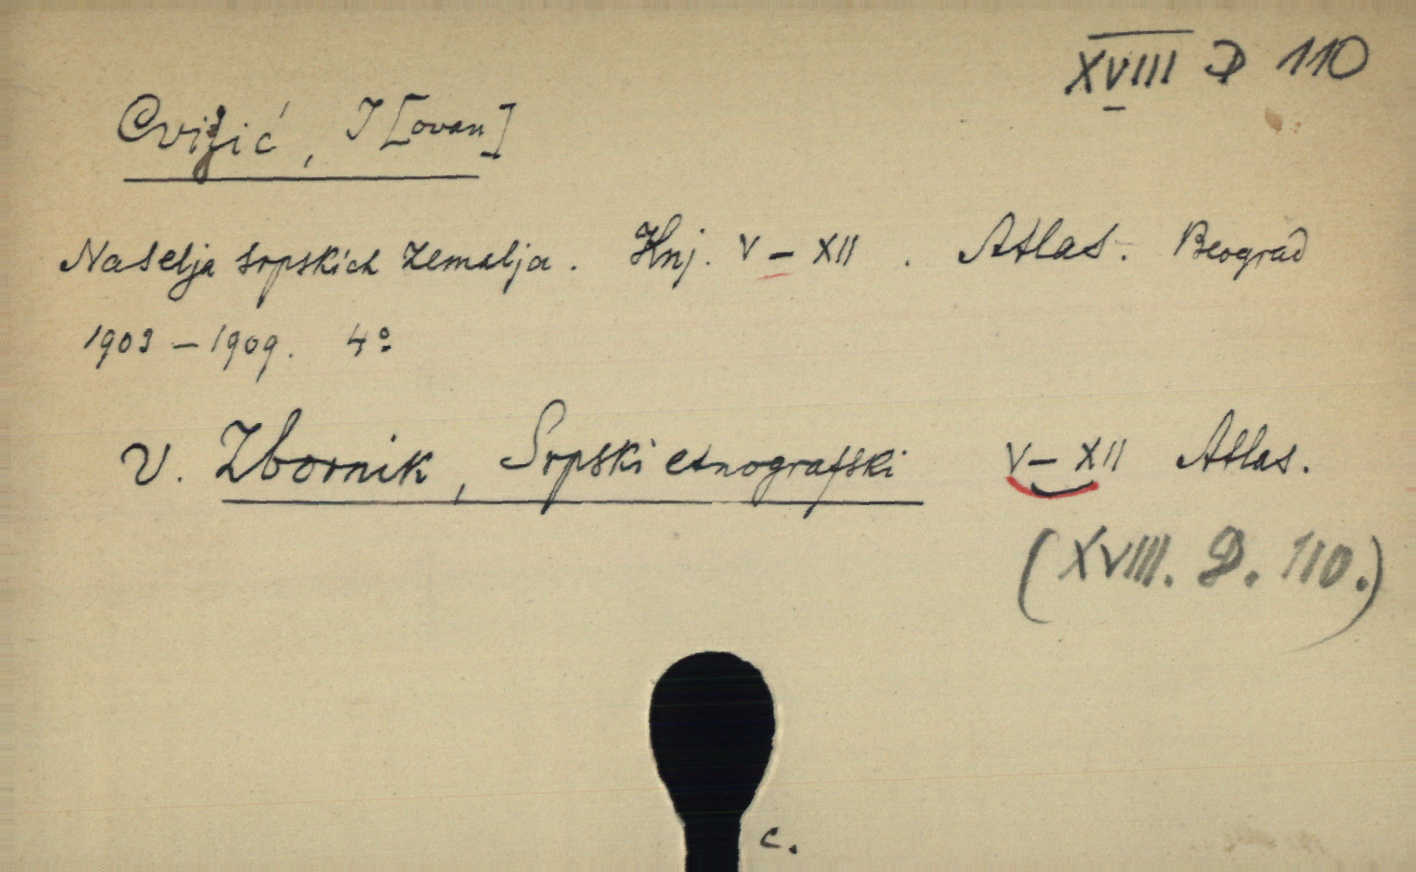 XVIII D 110
Cvižić, J[ovan]
Naselja srpskich zemalja. Knj. V – XII. Atlas. Beograd
1903 – 1909. 4º
V. Zbornik, Srpski etnografski V – XII Atlas.
(XVIII. D. 110.)
c.